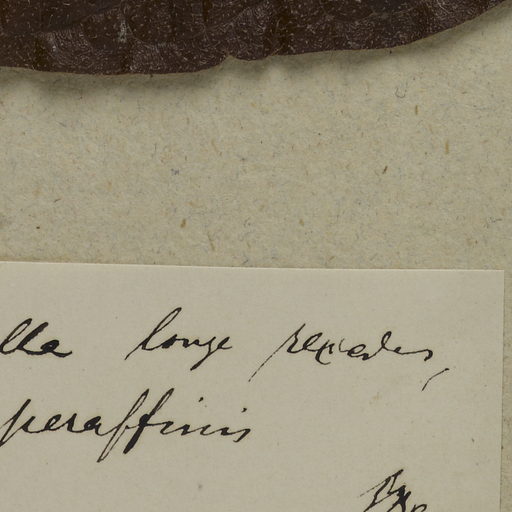 lla longe recedens,
peraffinis